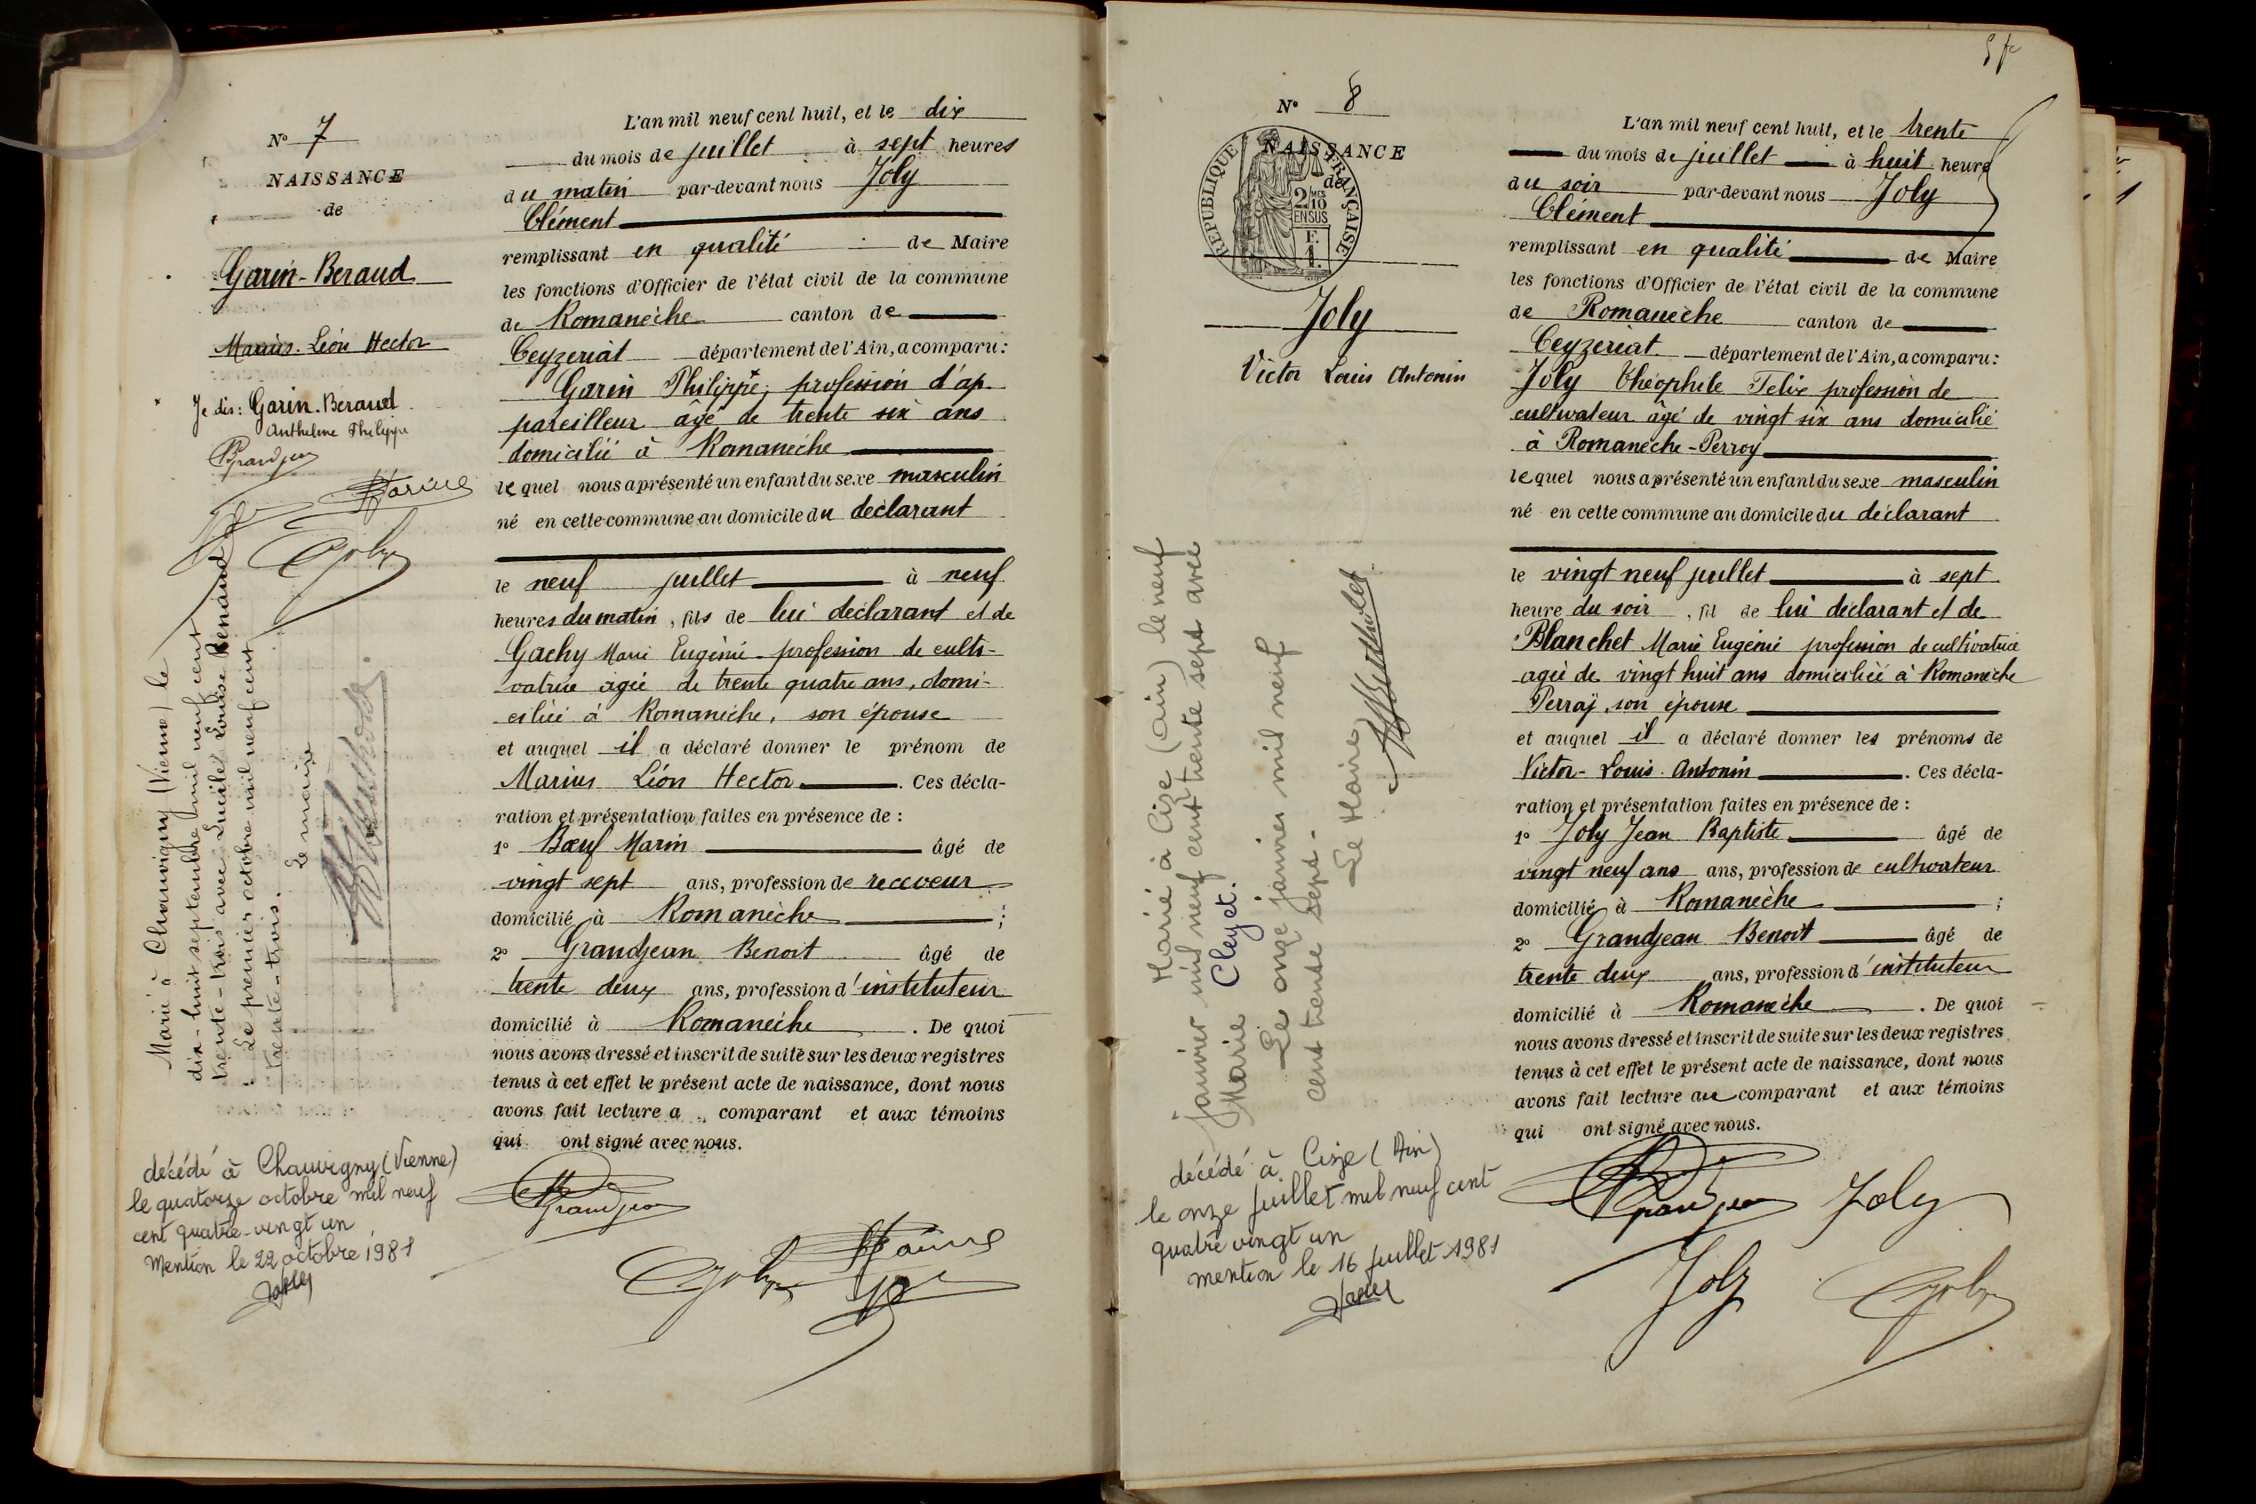 N° 7
NAISSANCE
de
Garin-Beraud
Marius Léon Hector
Je dis: Garin-Beraud
Anthelme Philippe
Grandjean
Marié à Chauvigny (Vienne) le
dix-huit septembre mil neuf cent
trente-trois avec Lucile Louise Renaud
Le premier octobre mil neuf cent
trente-trois.
Le maire
décédé à Chauvigny (Vienne)
le quatorze octobre mil neuf
cent quatre-vingt un
Mention le 22 octobre 1981
L'an mil neuf cent huit, et le dix
du mois de juillet à sept heures
du matin par-devant nous Joly
Clément
remplissant en qualité de Maire
les fonctions d'Officier de l'état civil de la commune
de Romanèche canton de
Ceyzériat département de l'Ain, a comparu:
Garin Philippe, profession d'ap-
pareilleur âgé de trente six ans
domicilié à Romanèche
lequel nous a présenté un enfant du sexe masculin
né en cette commune au domicile du déclarant
le neuf juillet à neuf
heures du matin, fils de lui déclarant et de
Gachy Marie Eugénie profession de culti-
vatrice agée de trente quatre ans, domi-
ciliée à Romanèche, son épouse
et auquel il a déclaré donner le prénom de
Marius Léon Hector. Ces décla-
ration et présentation faites en présence de :
1° Bœuf Marin âgé de
vingt sept ans, profession de receveur
domicilié à Romanèche ;
2° Grandjean Benoit âgé de
trente deux ans, profession d'instituteur
domicilié à Romanèche. De quoi
nous avons dressé et inscrit de suite sur les deux registres
tenus à cet effet le présent acte de naissance, dont nous
avons fait lecture a comparant et aux témoins
qui ont signé avec nous.
Grandjean
Joly
N° 8
NAISSANCE
de
REPUBLIQUE FRANÇAISE
2 MES
10
EN SUS
Joly
Victor Louis Antonin
Marié à Cize (Ain) le neuf
janvier mil neuf cent trente sept avec
Marie Cleyet.
Le onze janvier mil neuf
cent trente sept.
Le Maire
décédé à Cize (Ain)
le onze juillet mil neuf cent
quatre vingt un
mention le 16 juillet 1981
L'an mil neuf cent huit, et le trente
du mois de juillet à huit heure
du soir par-devant nous Joly
Clément
remplissant en qualité de Maire
les fonctions d'Officier de l'état civil de la commune
de Romanèche canton de
Ceyzériat département de l'Ain, a comparu:
Joly Théophile Felix profession de
cultivateur âgé de vingt six ans domicilié
à Romanèche-Perroy
lequel nous a présenté un enfant du sexe masculin
né en cette commune au domicile du déclarant
le vingt neuf juillet à sept
heure du soir, fil de lui déclarant et de
Blanchet Marie Eugénie profession de cultivatrice
agée de vingt huit ans domiciliée à Romanèche
Perraÿ, son épouse
et auquel il a déclaré donner les prénoms de
Victor-Louis Antonin. Ces décla-
ration et présentation faites en présence de :
1° Joly Jean Baptiste âgé de
vingt neuf ans ans, profession de cultivateur
domicilié à Romanèche ;
2° Grandjean Benoit âgé de
trente deux ans, profession d'instituteur
domicilié à Romanèche. De quoi
nous avons dressé et inscrit de suite sur les deux registres
tenus à cet effet le présent acte de naissance, dont nous
avons fait lecture au comparant et aux témoins
qui ont signé avec nous.
Grandjean Joly
Joly Joly